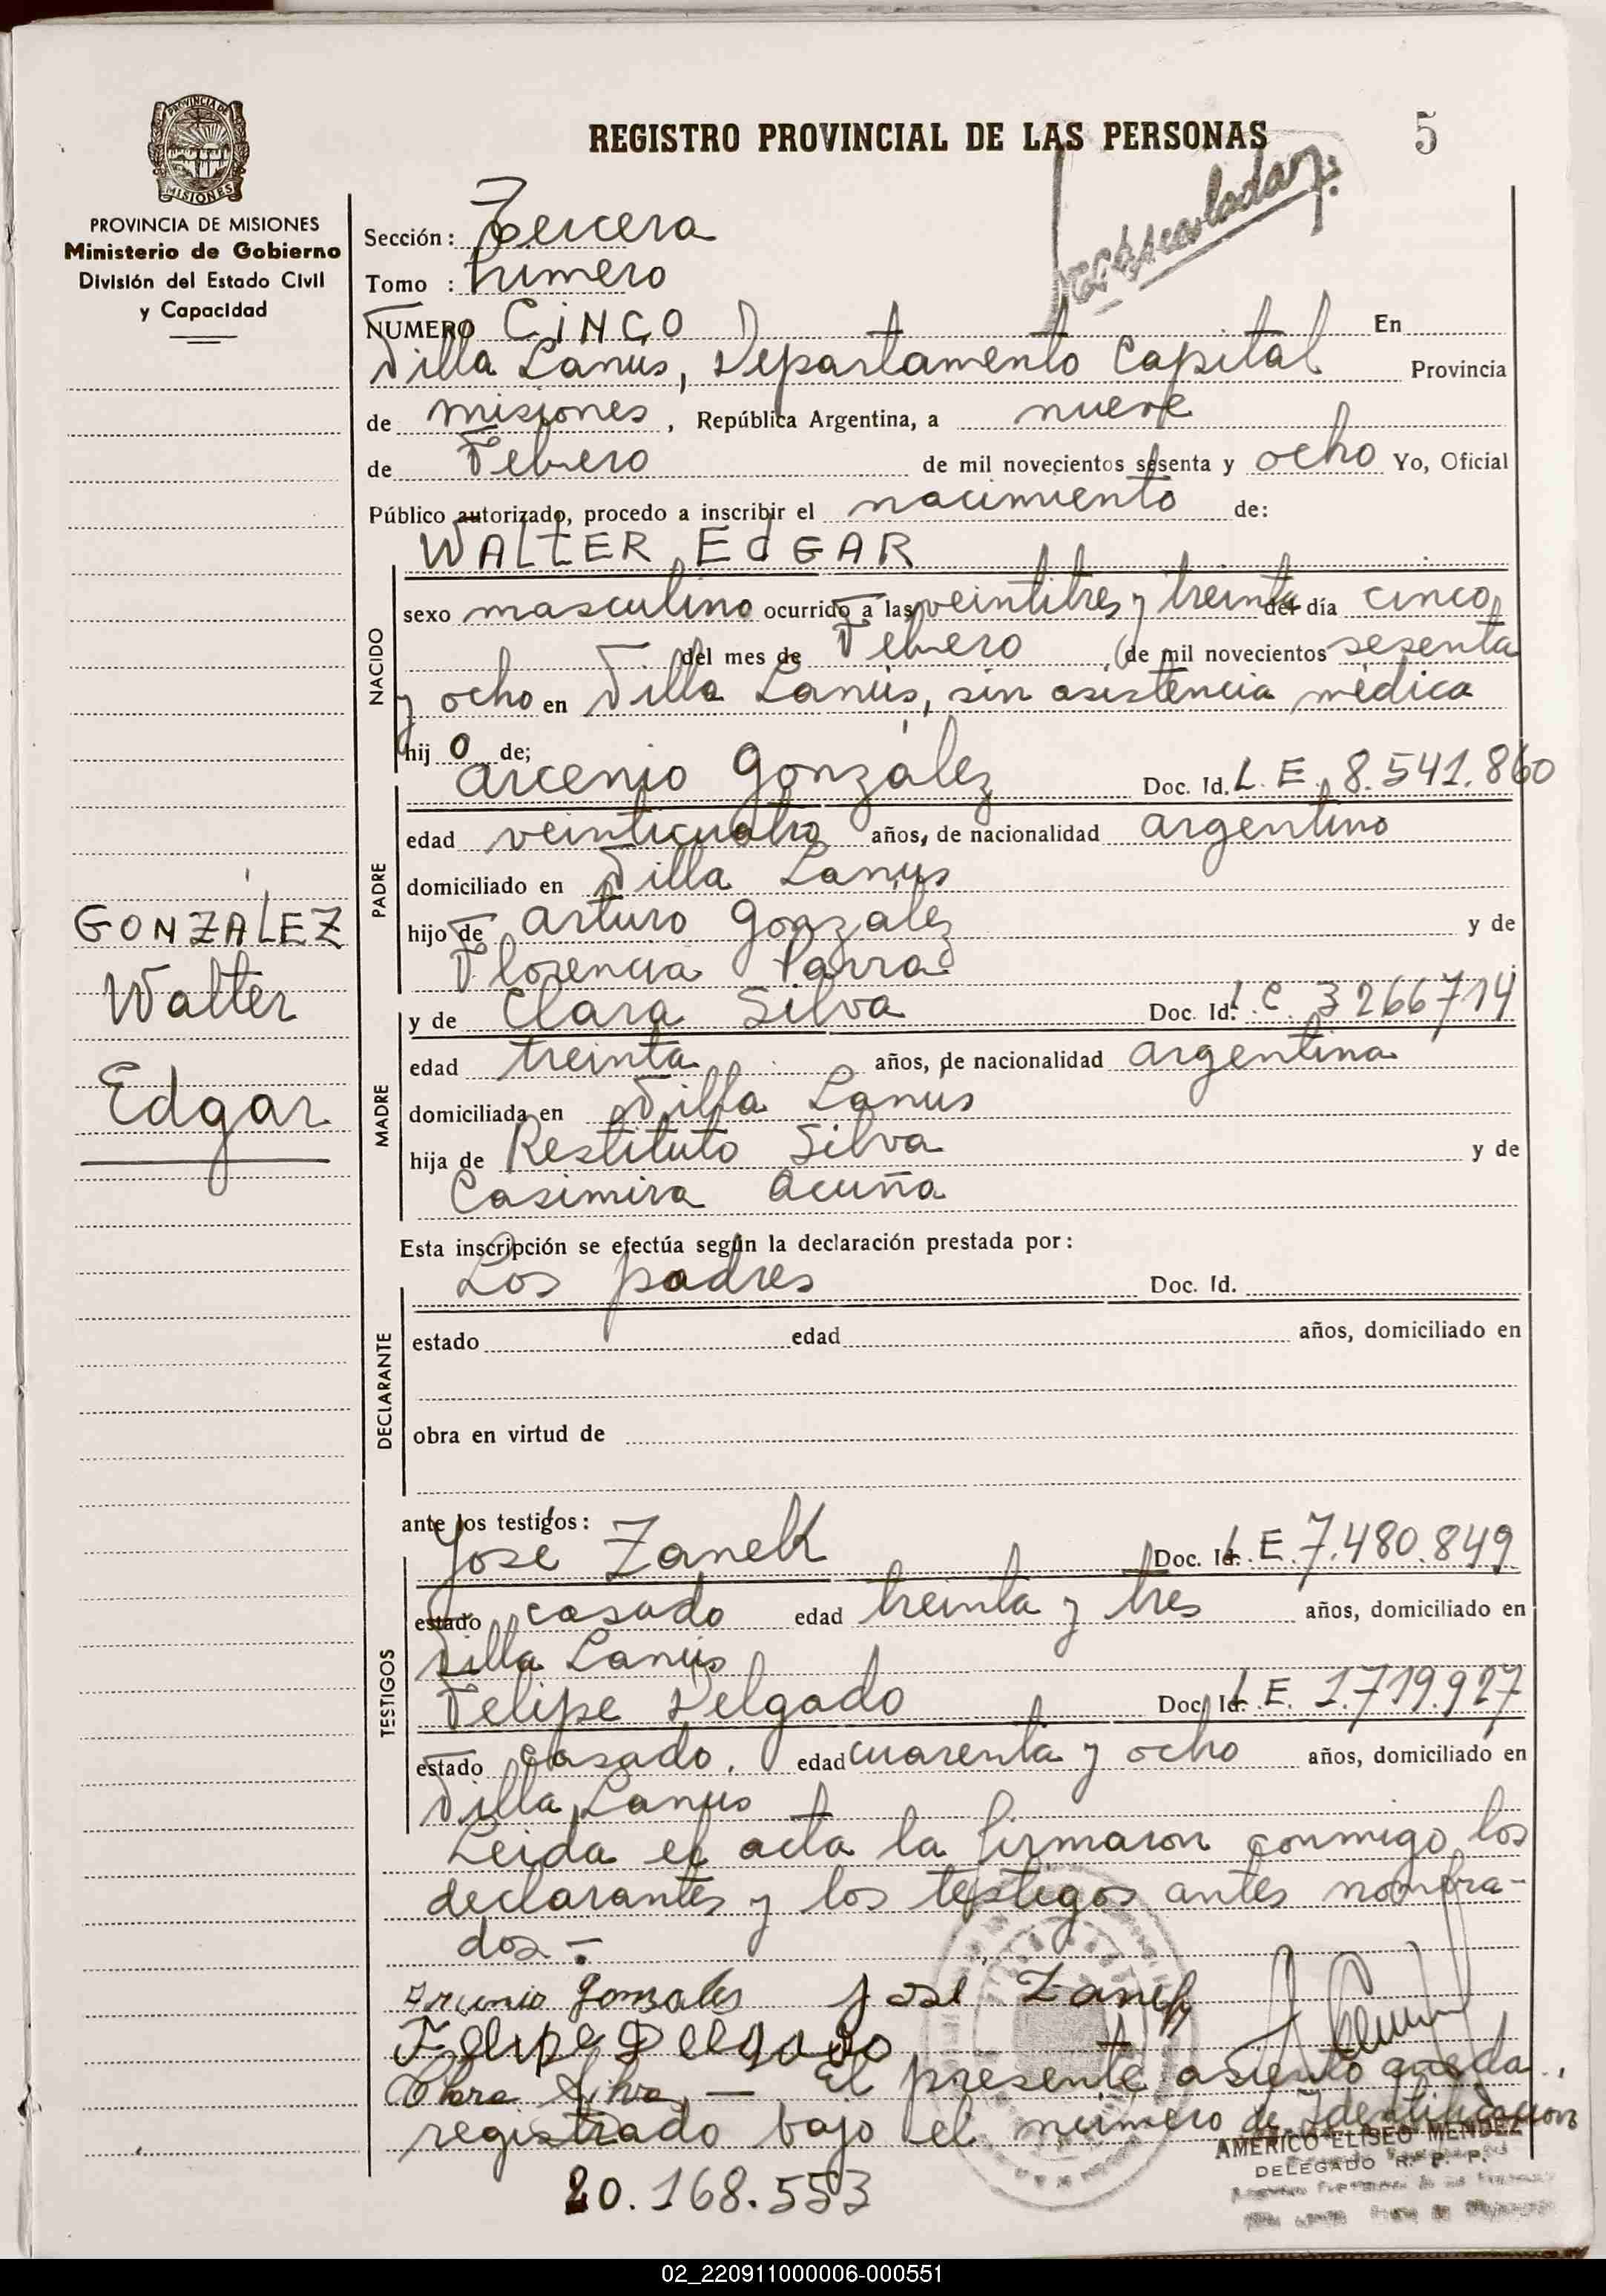 REGISTRO PROVINCIAL DE LAS PERSONAS
5
PROVINCIA DE
MISIONES
PROVINCIA DE MISIONES
Ministerio de Gobierno
División del Estado Civil
y Capacidad
GONZALEZ
Walter
Edgar
Sección: Tercera
Tomo : Primero
NUMERO CINCO En
Villa Lanús, Departamento Capital Provincia
de Misiones, República Argentina, a nueve
de Febrero de mil novecientos sesenta y ocho Yo, Oficial
Público autorizado, procedo a inscribir el nacimiento de:
WALTER EDGAR
NACIDO
sexo masculino ocurrido a las veintitres y treinta del día cinco
del mes de Febrero de mil novecientos sesenta
y ocho en Villa Lanús, sin asistencia médica
hijo de;
PADRE
Arcenio González Doc. Id. L. E. 8.541.860
edad veinticuatro años, de nacionalidad argentino
domiciliado en Villa Lanús
hijo de Arturo González y de
Florencia Parra
MADRE
y de Clara Silva Doc. Id. L. C. 3266714
edad treinta años, de nacionalidad argentina
domiciliada en Villa Lanus
hija de Restituto Silva y de
Casimira Acuña
Esta inscripción se efectúa según la declaración prestada por:
DECLARANTE
Los padres Doc. Id.
estado edad años, domiciliado en
obra en virtud de
ante los testigos:
TESTIGOS
José Zanek Doc. Id. L. E. 7.480.849
estado casado edad treinta y tres años, domiciliado en
Villa Lanús
Felipe Delgado Doc. Id. L. E. 1.719.927
estado casado. edad cuarenta y ocho años, domiciliado en
Villa Lanus
Leida el acta la firmaron conmigo los
declarantes y los testigos antes nombra-
dos-.
Arcenio Gonzales José Zanek
Felipe Delgado
Clara Silva — El presente asiento queda
registrado bajo el número de Identificacion
20.168.553
AMERICO ELISEO MENDEZ
DELEGADO R. P. P.
02_220911000006-000551